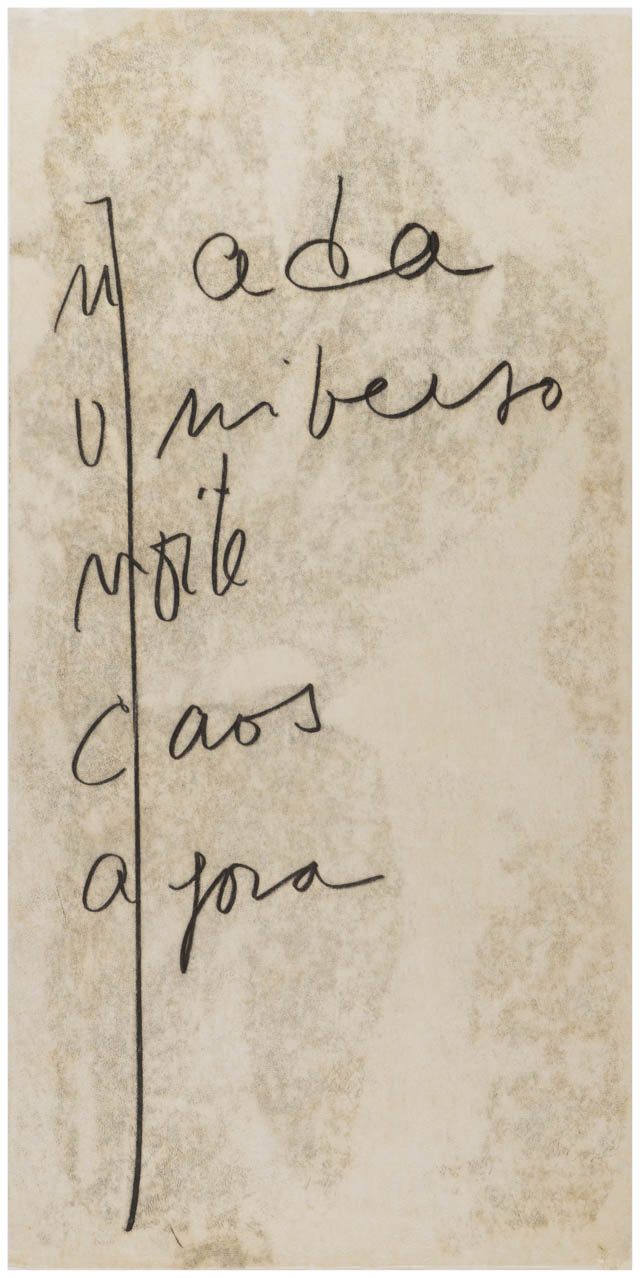 nada
universo
noite
caos
agora